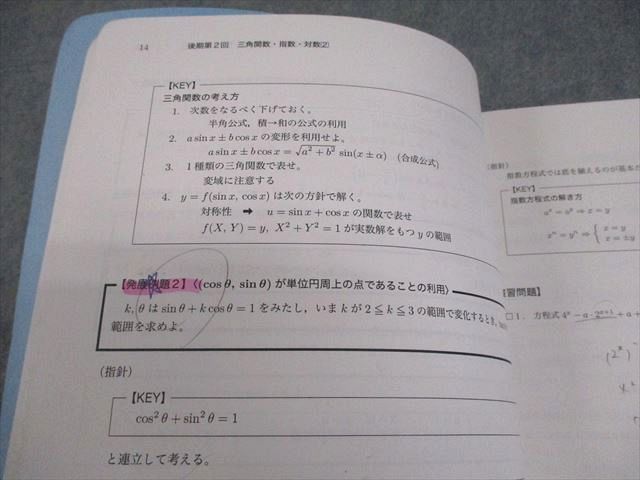 14
後期第2回 三角関数・指数・対数(2)
【KEY】
三角関数の考え方
1. 次数をなるべく下げておく。
半角公式，積→和の公式の利用
2. a sin x ± b cos x の変形を利用せよ。
a sin x ± b cos x = √(a² + b²) sin(x ± α) (合成公式)
3. 1種類の三角関数で表せ。
変域に注意する
4. y = f(sin x, cos x) は次の方針で解く。
対称性 ➡ u = sin x + cos x の関数で表せ
f(X, Y) = y, X² + Y² = 1 が実数解をもつ y の範囲
【発展例題2】〈(cos θ, sin θ) が単位円周上の点であることの利用〉
k, θ は sin θ + k cos θ = 1 をみたし，いま k が 2 ≦ k ≦ 3 の範囲で変化するとき，
範囲を求めよ。
(指針)
【KEY】
cos² θ + sin² θ = 1
と連立して考える。
(指針)
指数方程式では底を揃えるのが基本
【KEY】
指数方程式の解き方
習問題】
□1. 方程式 4ˣ − a · 2ˣ⁺¹ + a +